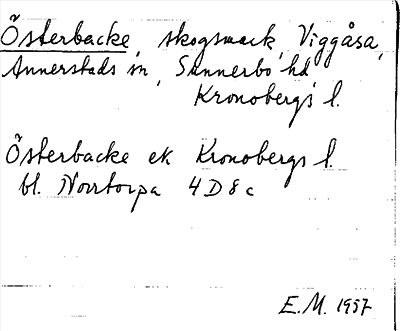 Österbacke, skogsmark, Viggåsa,
Annerstads sn, Sunnerbo hd,
Kronobergs l.
Österbacke ek Kronobergs l.
bl. Norrtorpa 4D8c
E.M. 1957